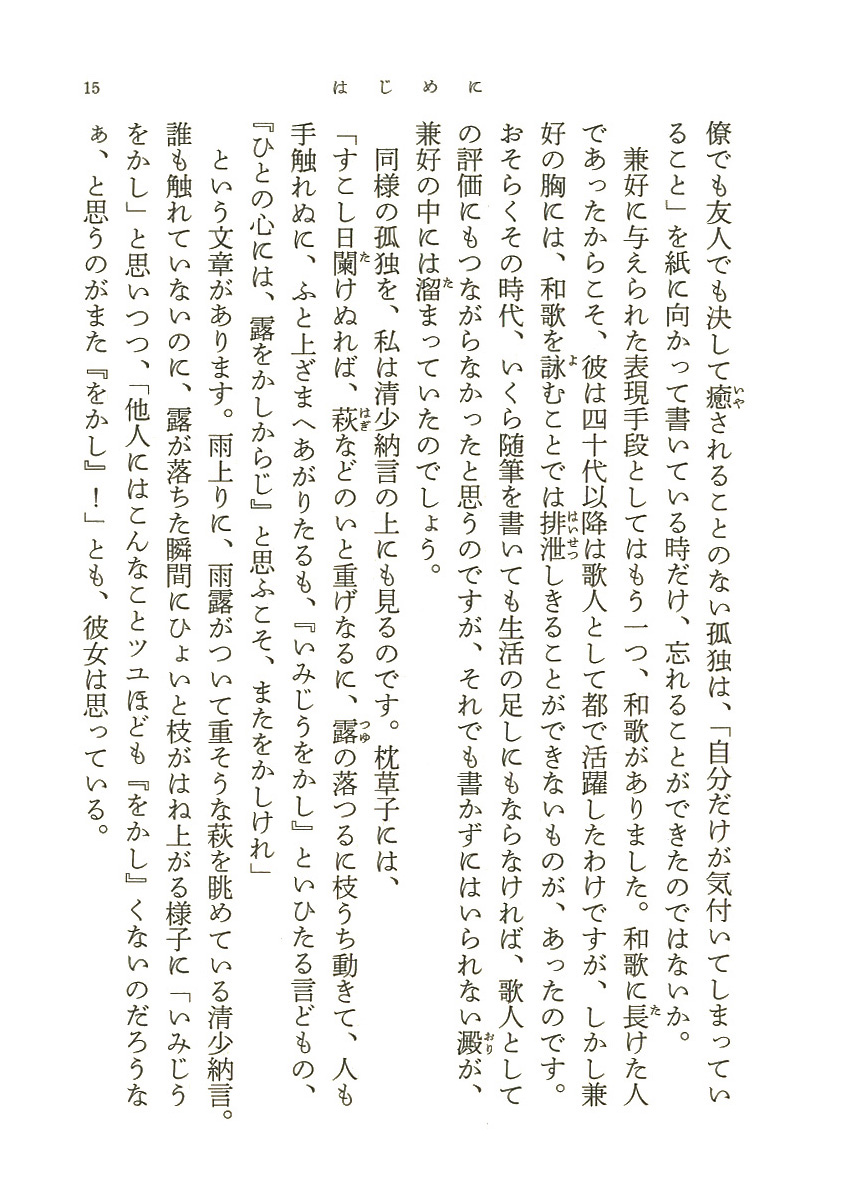 15
はじめに
僚でも友人でも決して癒されることのない孤独は、「自分だけが気付いてしまってい
ること」を紙に向かって書いている時だけ、忘れることができたのではないか。
兼好に与えられた表現手段としてはもう一つ、和歌がありました。和歌に長けた人
であったからこそ、彼は四十代以降は歌人として都で活躍したわけですが、しかし兼
好の胸には、和歌を詠むことでは排泄しきることができないものが、あったのです。
おそらくその時代、いくら随筆を書いても生活の足しにもならなければ、歌人として
の評価にもつながらなかったと思うのですが、それでも書かずにはいられない澱が、
兼好の中には溜まっていたのでしょう。
同様の孤独を、私は清少納言の上にも見るのです。枕草子には、
「すこし日闌けぬれば、萩などのいと重げなるに、露の落つるに枝うち動きて、人も
手触れぬに、ふと上ざまへあがりたるも、『いみじうをかし』といひたる言どもの、
『ひとの心には、露をかしからじ』と思ふこそ、またをかしけれ」
という文章があります。雨上りに、雨露がついて重そうな萩を眺めている清少納言。
誰も触れていないのに、露が落ちた瞬間にひょいと枝がはね上がる様子に「いみじう
をかし」と思いつつ、「他人にはこんなことツユほども『をかし』くないのだろうな
ぁ、と思うのがまた『をかし』！」とも、彼女は思っている。